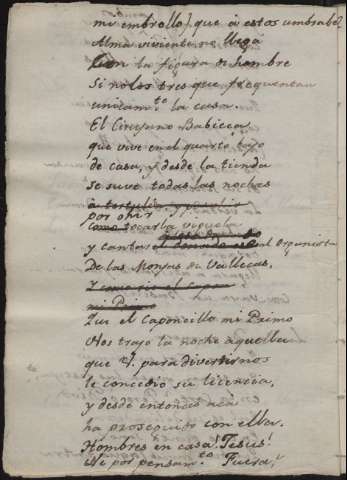 mi embrollo) que á estos umbrales
Alma viviente no llega
Con la figura de hombre
Si no los tres que frequentan
unicam.te la casa.
El Cirujano Babieca
que vive en el quarto bajo
de casa, y desde la tienda
se suve todas las noches
á tertulia, y
por ohir
como tocar la viguela
y cantar al Organista
De las Monjas de Vallecas.
Y como es el Capon
mi Primo
Que el Caponcillo mi Primo
Nos trajo la noche aquella
que V. para divertirnos
le concedio su licencia,
y desde entonces acá
ha proseguido con ella.
Hombres en casa! Jesus!
Ni por pensam.to Fuera!